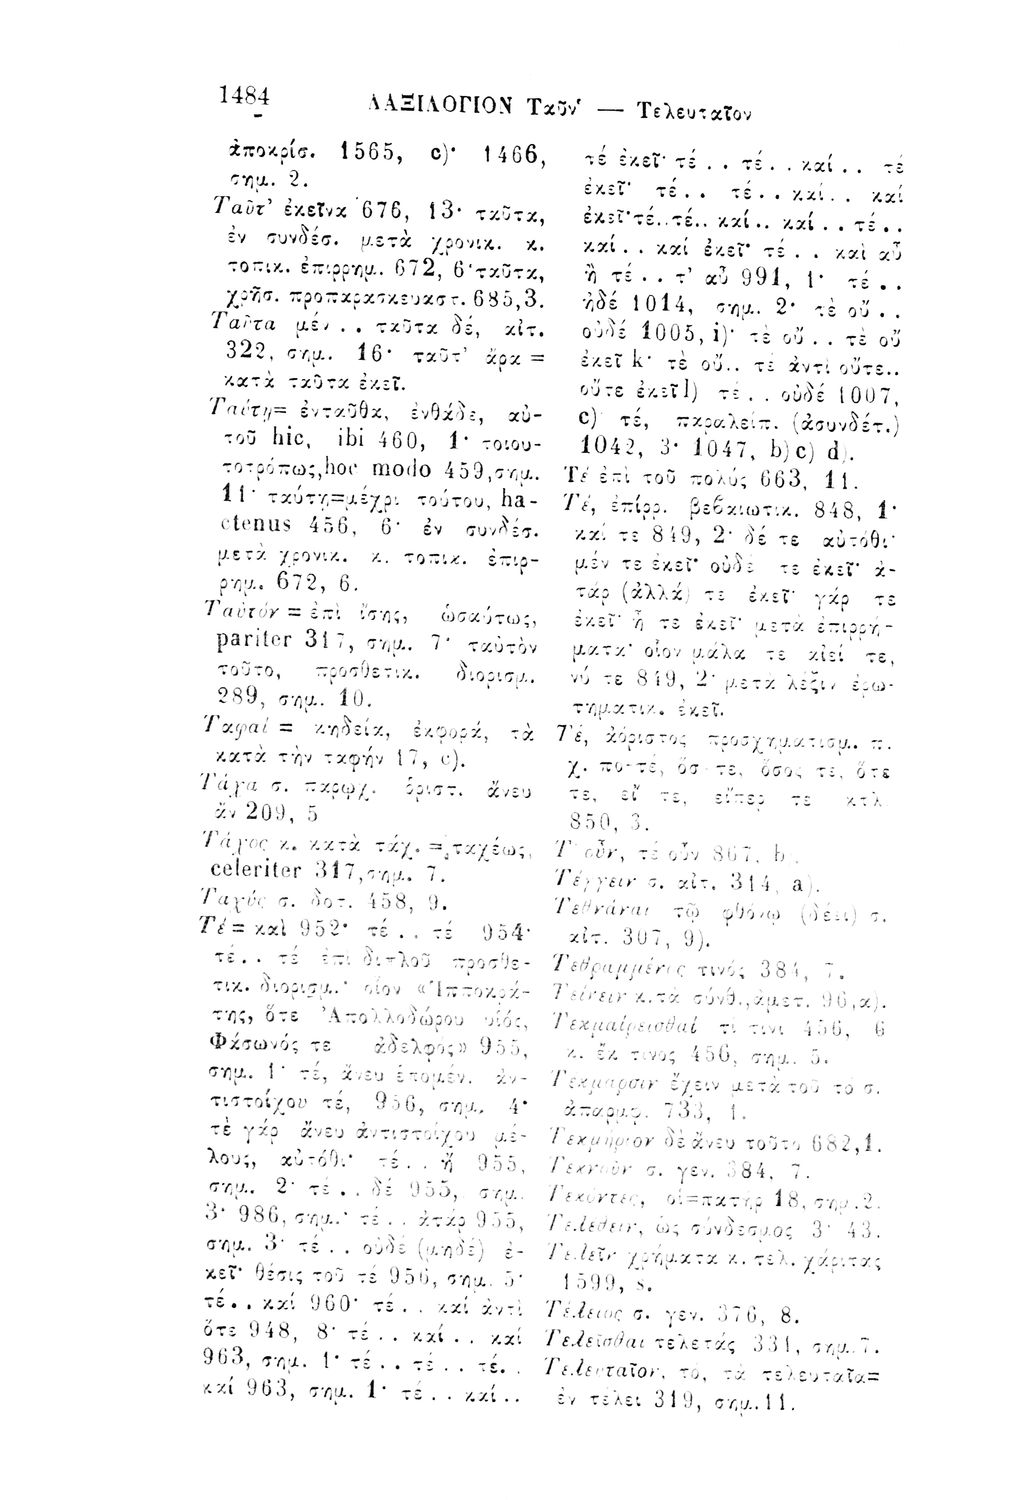 1484 ΛΑΞΙΛΟΓΙΟΝ Ταῦν' — Τελευταῖον
ἀποκρίσ. 1565, c)· 1466,
σημ. 2.
Ταῦτ' ἐκεῖνα 676, 13· ταῦτα,
ἐν συνδέσ. μετὰ χρονικ. κ.
τοπικ. ἐπιρρημ. 672, 6· ταῦτα,
χρῆσ. προπαρασκευαστ. 685,3.
Ταῦτα μέν . . ταῦτα δέ, αἰτ.
322, σημ. 16· ταῦτ' ἄρα =
κατὰ ταῦτα ἐκεῖ.
Ταύτῃ= ἐνταῦθα, ἐνθάδε, αὐ-
τοῦ hic, ibi 460, 1· τοιου-
τοτρόπως, hoc modo 459, σημ.
11· ταύτῃ=μέχρι τούτου, ha-
ctenus 456, 6· ἐν συνδέσ.
μετὰ χρονικ. κ. τοπικ. ἐπιρ-
ρημ. 672, 6.
Ταὐτόν = ἐπὶ ἴσης, ὡσαύτως,
pariter 317, σημ. 7· ταὐτὸν
τοῦτο, προσθετικ. διορισμ.
289, σημ. 10.
Ταφαί = κηδεία, ἐκφορά, τὰ
κατὰ τὴν ταφήν 17, c).
Τάχα σ. παρῳχ. ὁριστ. ἄνευ
ἄν 209, 5
Τάχος κ. κατὰ τάχ. = ταχέως,
celeriter 317, σημ. 7.
Ταχύς σ. δοτ. 458, 9.
Τέ = καὶ 952· τέ . . τέ 954·
τέ . . τέ ἐπὶ διπλοῦ προσθε-
τικ. διορισμ.· οἷον «Ἱπποκρά-
της, ὅτε Ἀπολλοδώρου υἱός,
Φάσωνός τε ἀδελφός» 955,
σημ. 1· τέ, ἄνευ ἑπομέν. ἀν-
τιστοίχου τέ, 956, σημ. 4·
τὲ γάρ ἄνευ ἀντιστοίχου μέ-
λους, αὐτόθι· τέ . . ἤ 955,
σημ. 2· τέ . . δέ 955, σημ.
3· 986, σημ.· τέ . . ἀτάρ 955,
σημ. 3· τέ . . οὐδέ (μηδέ) ἐ-
κεῖ· θέσις τοῦ τέ 956, σημ. 5·
τέ . . καί 960· τέ . . καί ἀντὶ
ὅτε 948, 8· τέ . . καί . . καί
963, σημ. 1· τέ . . τέ . . τέ . .
καί 963, σημ. 1· τέ . . καί . .
τέ ἐκεῖ· τέ . . τέ . . καί . . τέ
ἐκεῖ· τέ . . τέ . . καί . . καί
ἐκεῖ· τέ . . τέ . . καί . . καί . . τέ . .
καί . . καί ἐκεῖ· τέ . . καὶ αὖ
ἢ τέ . . τ' αὖ 991, 1· τέ . .
ἠδέ 1014, σημ. 2· τὲ οὔ . .
οὐδέ 1005, i)· τὲ οὔ . . τὲ οὔ
ἐκεῖ k· τὲ οὔ . . τὲ ἀντὶ οὔτε . .
οὔτε ἐκεῖ l) τέ . . οὐδέ 1007,
c)· τέ, παραλείπ. (ἀσυνδέτ.)
1042, 3· 1047, b) c) d).
Τέ ἐπὶ τοῦ πολύς 663, 11.
Τέ, ἐπίρρ. βεβαιωτικ. 848, 1·
καί τε 849, 2· δέ τε αὐτόθι·
μέν τε ἐκεῖ· οὐδέ τε ἐκεῖ· ἀ-
τάρ (ἀλλά) τε ἐκεῖ· γάρ τε
ἐκεῖ· ἤ τε ἐκεῖ· μετὰ ἐπιρρή-
ματα· οἷον μάλα τε αἰεί τε,
νύ τε 849, 2· μετὰ λέξιν ἐρω-
τηματικ. ἐκεῖ.
Τέ, ἀόριστος προσχηματισμ. π.
χ. πο-τέ, ὅσ-τε, ὅσος τε, ὅτε
τε, εἴ τε, εἴπερ τε κτλ
850, 3.
Τ' οὖν, τὲ οὖν 867, b).
Τέγγειν σ. αἰτ. 314, a).
Τεθνάναι τῷ φόβῳ (δέει) σ.
αἰτ. 307, 9).
Τεθραμμένος τινός 384, 7.
Τείνειν κ. τὰ σύνθ., ἀμετ. 96,α).
Τεκμαίρεσθαί τί τινι 456, 6
κ. ἔκ τινος 456, σημ. 5.
Τέκμαρσιν ἔχειν μετὰ τοῦ τό σ.
ἀπαρμφ. 733, 1.
Τεκμήριον δὲ ἄνευ τούτο 682,1.
Τεκνοῦν σ. γεν. 384, 7.
Τεκόντες, οἱ=πατήρ 18, σημ. 2.
Τελέθειν, ὡς σύνδεσμος 3· 43.
Τελεῖν χρήματα κ. τελ. χάριτας
1599, s.
Τέλειος σ. γεν. 376, 8.
Τελεῖσθαι τελετάς 331, σημ. 7.
Τελευταῖον, τό, τὰ τελευταῖα=
ἐν τέλει 319, σημ. 11.